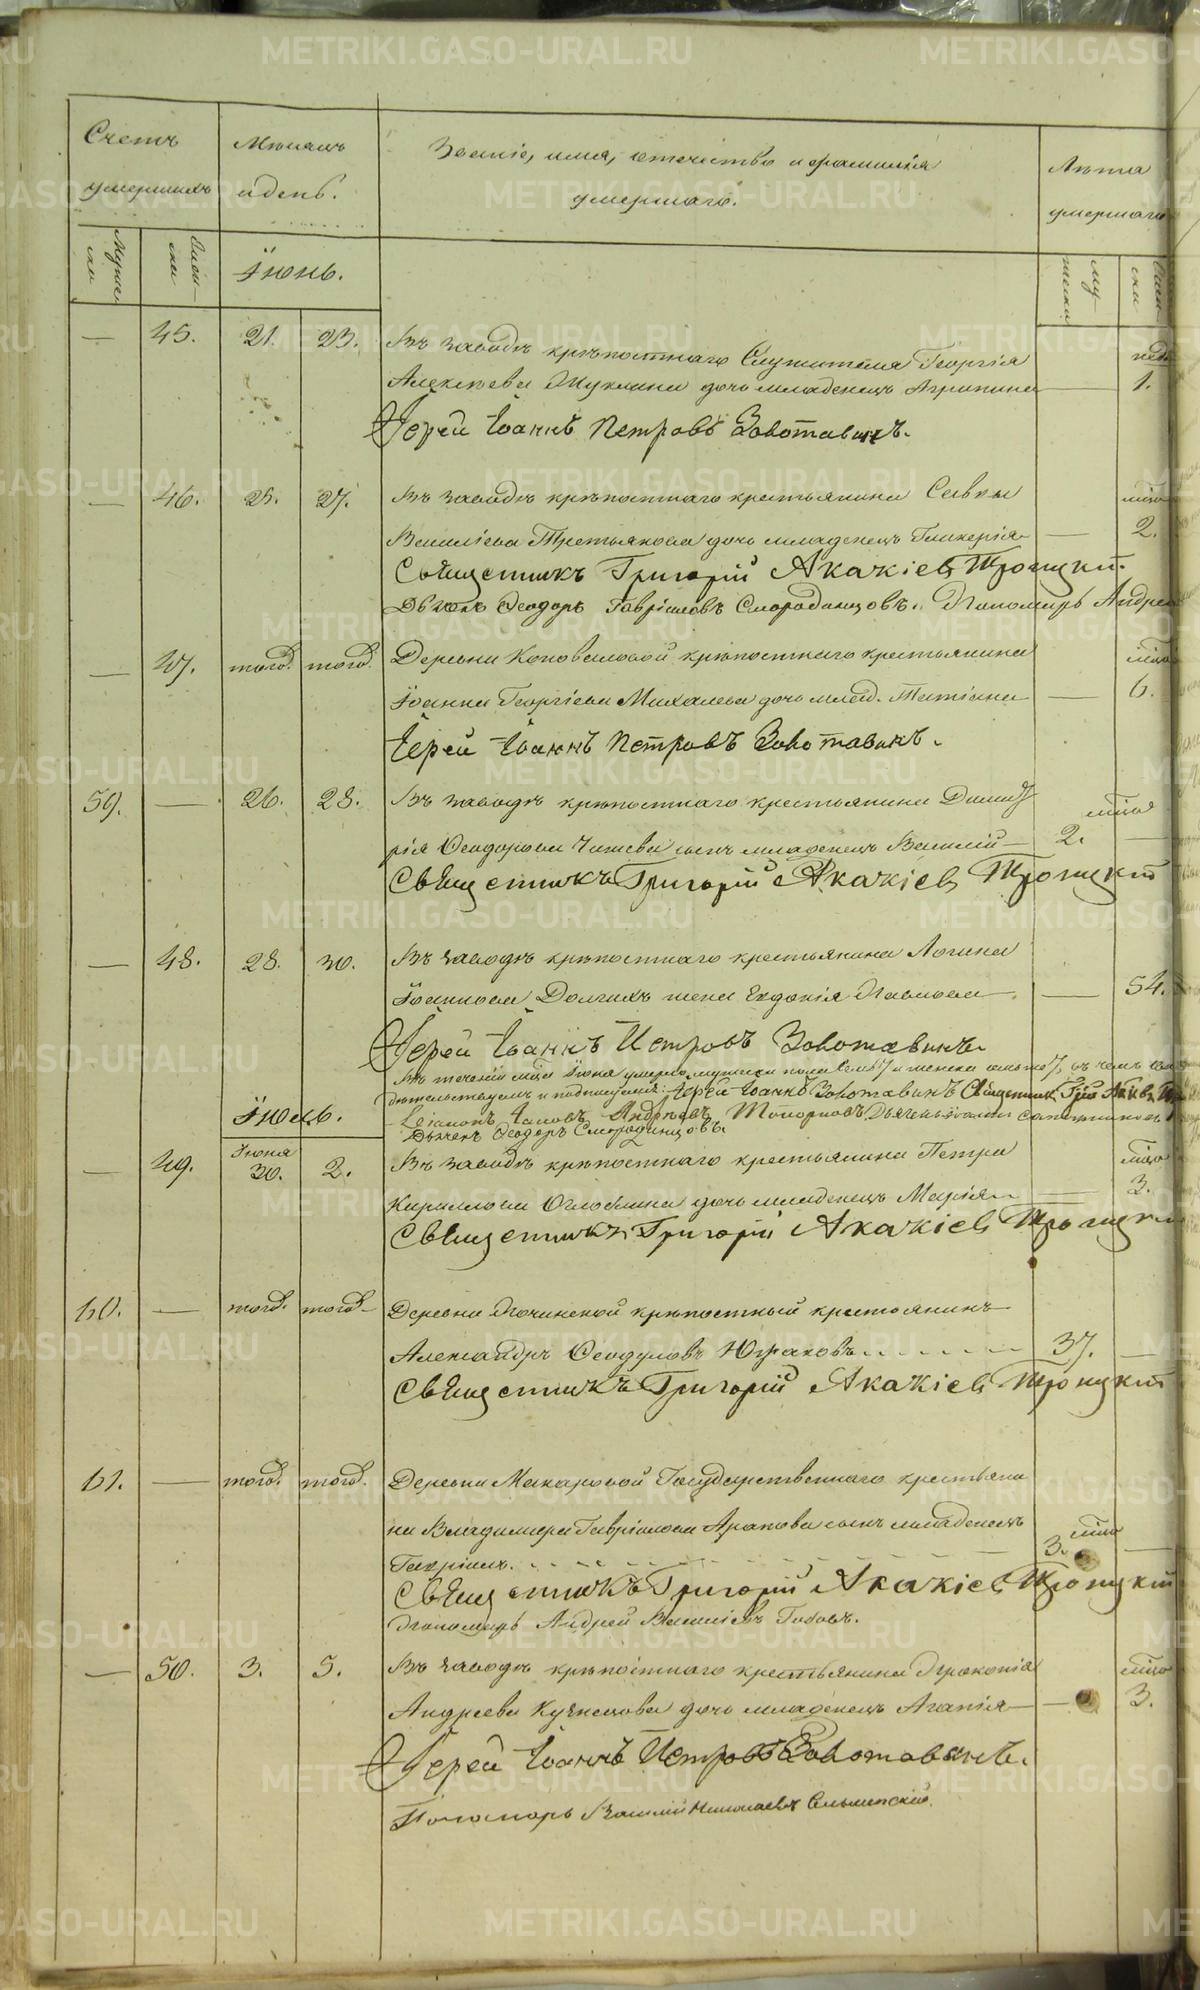 METRIKI.GASO-URAL.RU
Счетъ умершихъ
Мѣсяцъ и день.
Званіе, имя, отечество и фамилія умершаго.
Лѣта умершаго
Мужески
Іюнь.
— 45. 21. 23. Въ заводѣ крѣпостнаго Служителя Георгія
Алексѣева Жуклина дочь младенецъ Агрипина — 1.
Іерей Іоаннъ Петровъ Золотавинъ.
— 46. 25. 27. Въ заводѣ крѣпостнаго крестьянина Саввы
Василіева Третьякова дочь младенецъ Гликерія — 2.
Священникъ Григорій Акакіевъ Троицкій.
Дьячекъ Ѳеодоръ Гавріиловъ Смородинцовъ. Пономарь Андрей
— 47. тогож. тогож. Деревни Коноваловой крѣпостнаго крестьянина
Іоанна Георгіева Михалева дочь млад. Татіана — 6.
Іерей Іоаннъ Петровъ Золотавинъ.
59. — 26. 28. Въ заводѣ крѣпостнаго крестьянина Димит
рія Ѳеодорова сынъ младенецъ Василій — 2. —
Священникъ Григорій Акакіевъ Троицкій
— 48. 28. 30. Въ заводѣ крѣпостнаго крестьянина Логина
Іоаннова Долгихъ жена Евдокія Павлова — 54.
Іерей Іоаннъ Петровъ Золотавинъ.
Въ теченіи мѣсяца Іюня умерло мужеска пола и женска въ чемъ
и подписуемся: Іерей Іоаннъ Золотавинъ Священникъ
Іюль.
Андреевъ Топорковъ Дьячекъ
Дьячекъ Ѳеодоръ Смородинцовъ.
— 49. Іюня 30. 2. Въ заводѣ крѣпостнаго крестьянина Петра
Кириллова Оглоблина дочь младенецъ Марія — 3.
Священникъ Григорій Акакіевъ Троицкій
60. — тогож. тогож — Деревни Починской крѣпостный крестьянинъ
Александръ Ѳеодуловъ Юшковъ 37. —
Священникъ Григорій Акакіевъ Троицкій
61. — тогож. тогож. Деревни Макаровой Государственнаго крестьяни
на Владимира Гавріилова Арапова сынъ младенецъ
Гавріилъ. — 3. —
Священникъ Григорій Акакіевъ Троицкій
Пономарь Андрей Василіевъ
— 50. 3. 5. Въ заводѣ крѣпостнаго крестьянина Прокопія
Андреева Кузнецова дочь младенецъ Агапія — 3.
Іерей Іоаннъ Петровъ Золотавинъ.
Пономарь Василій Николаевъ